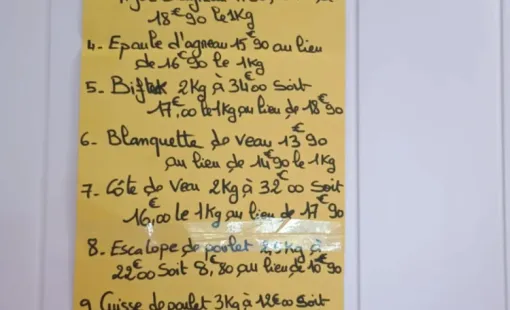 18€90 le 1Kg
4- Epaule d'agneau 15€90 au lieu
de 16€90 le 1Kg
5- Biftek 2Kg à 34€00 soit
17€,00 le 1Kg au lieu de 18€90
6- Blanquette de veau 13€90
au lieu de 14€90 le 1Kg
7- Côte de Veau 2Kg à 32€00 soit
16,00 le 1Kg au lieu de 17€90
8- Escalope de poulet 2,5Kg à
22€00 soit 8,€80 au lieu de 10€90
9 Cuisse de poulet 3Kg à 12€00 soit